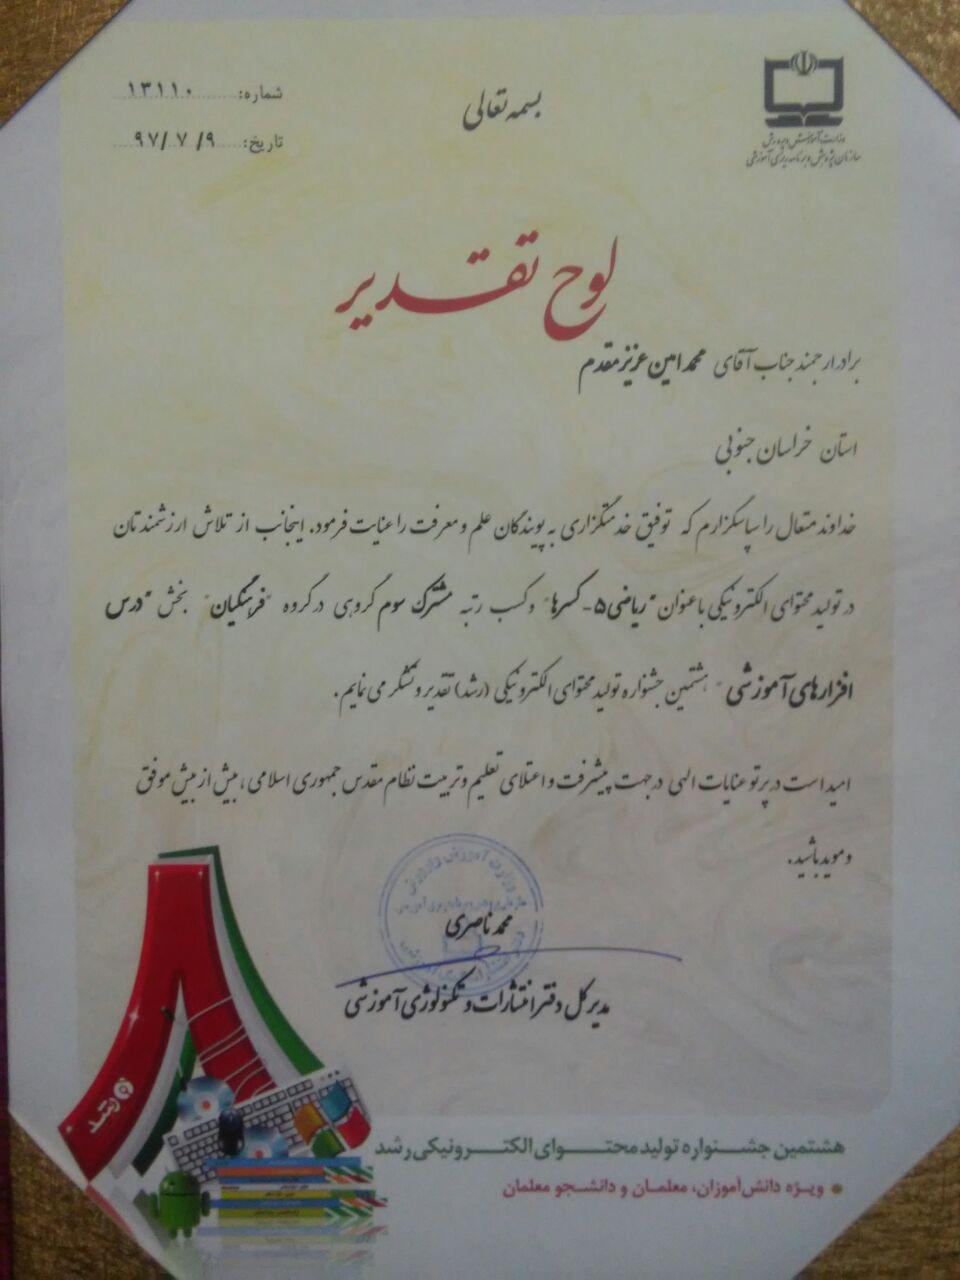 بسمه تعالی
وزارت آموزش و پرورش
سازمان پژوهش و برنامه ریزی آموزشی
شماره: ۱۳۱۱۰
تاریخ: ۹۷/۷/۹
لوح تقدیر
برادر ارجمند جناب آقای محمد امین عزیز مقدم
استان خراسان جنوبی
خداوند متعال را سپاسگزارم که توفیق خدمتگزاری به پویندگان علم و معرفت را عنایت فرمود. اینجانب از تلاش ارزشمندتان
در تولید محتوای الکترونیکی با عنوان "ریاضی ۵ - کسرها" و کسب رتبه مشترک سوم گروهی در گروه "فرهنگیان" بخش "درس
افزارهای آموزشی" هشتمین جشنواره تولید محتوای الکترونیکی (رشد) تقدیر و تشکر می نمایم.
امید است در پرتو عنایات الهی در جهت پیشرفت و اعتلای تعلیم و تربیت نظام مقدس جمهوری اسلامی، بیش از بیش موفق
و موید باشید.
محمد ناصری
مدیرکل دفتر انتشارات و تکنولوژی آموزشی
رشد
هشتمین جشنواره تولید محتوای الکترونیکی رشد
ویژه دانش‌آموزان، معلمان و دانشجو معلمان